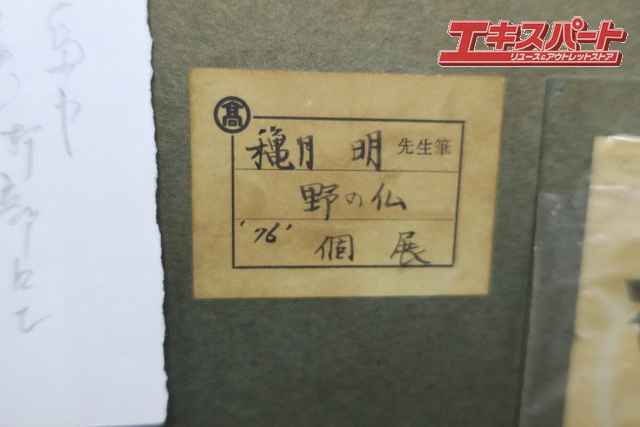 エキスパート
リユース&アウトレットストア
髙
穐月 明 先生筆
野の仏
'76' 個展